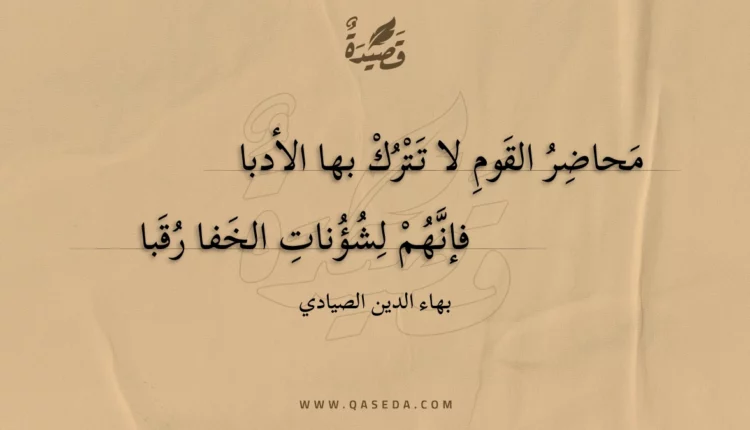 قَصِيدَةٌ
مَحاضِرُ القَومِ لا تَتْرُكْ بها الأدبا
فإنَّهُمْ لِشُؤُناتِ الخَفا رُقَبا
بهاء الدين الصيادي
WWW.QASEDA.COM